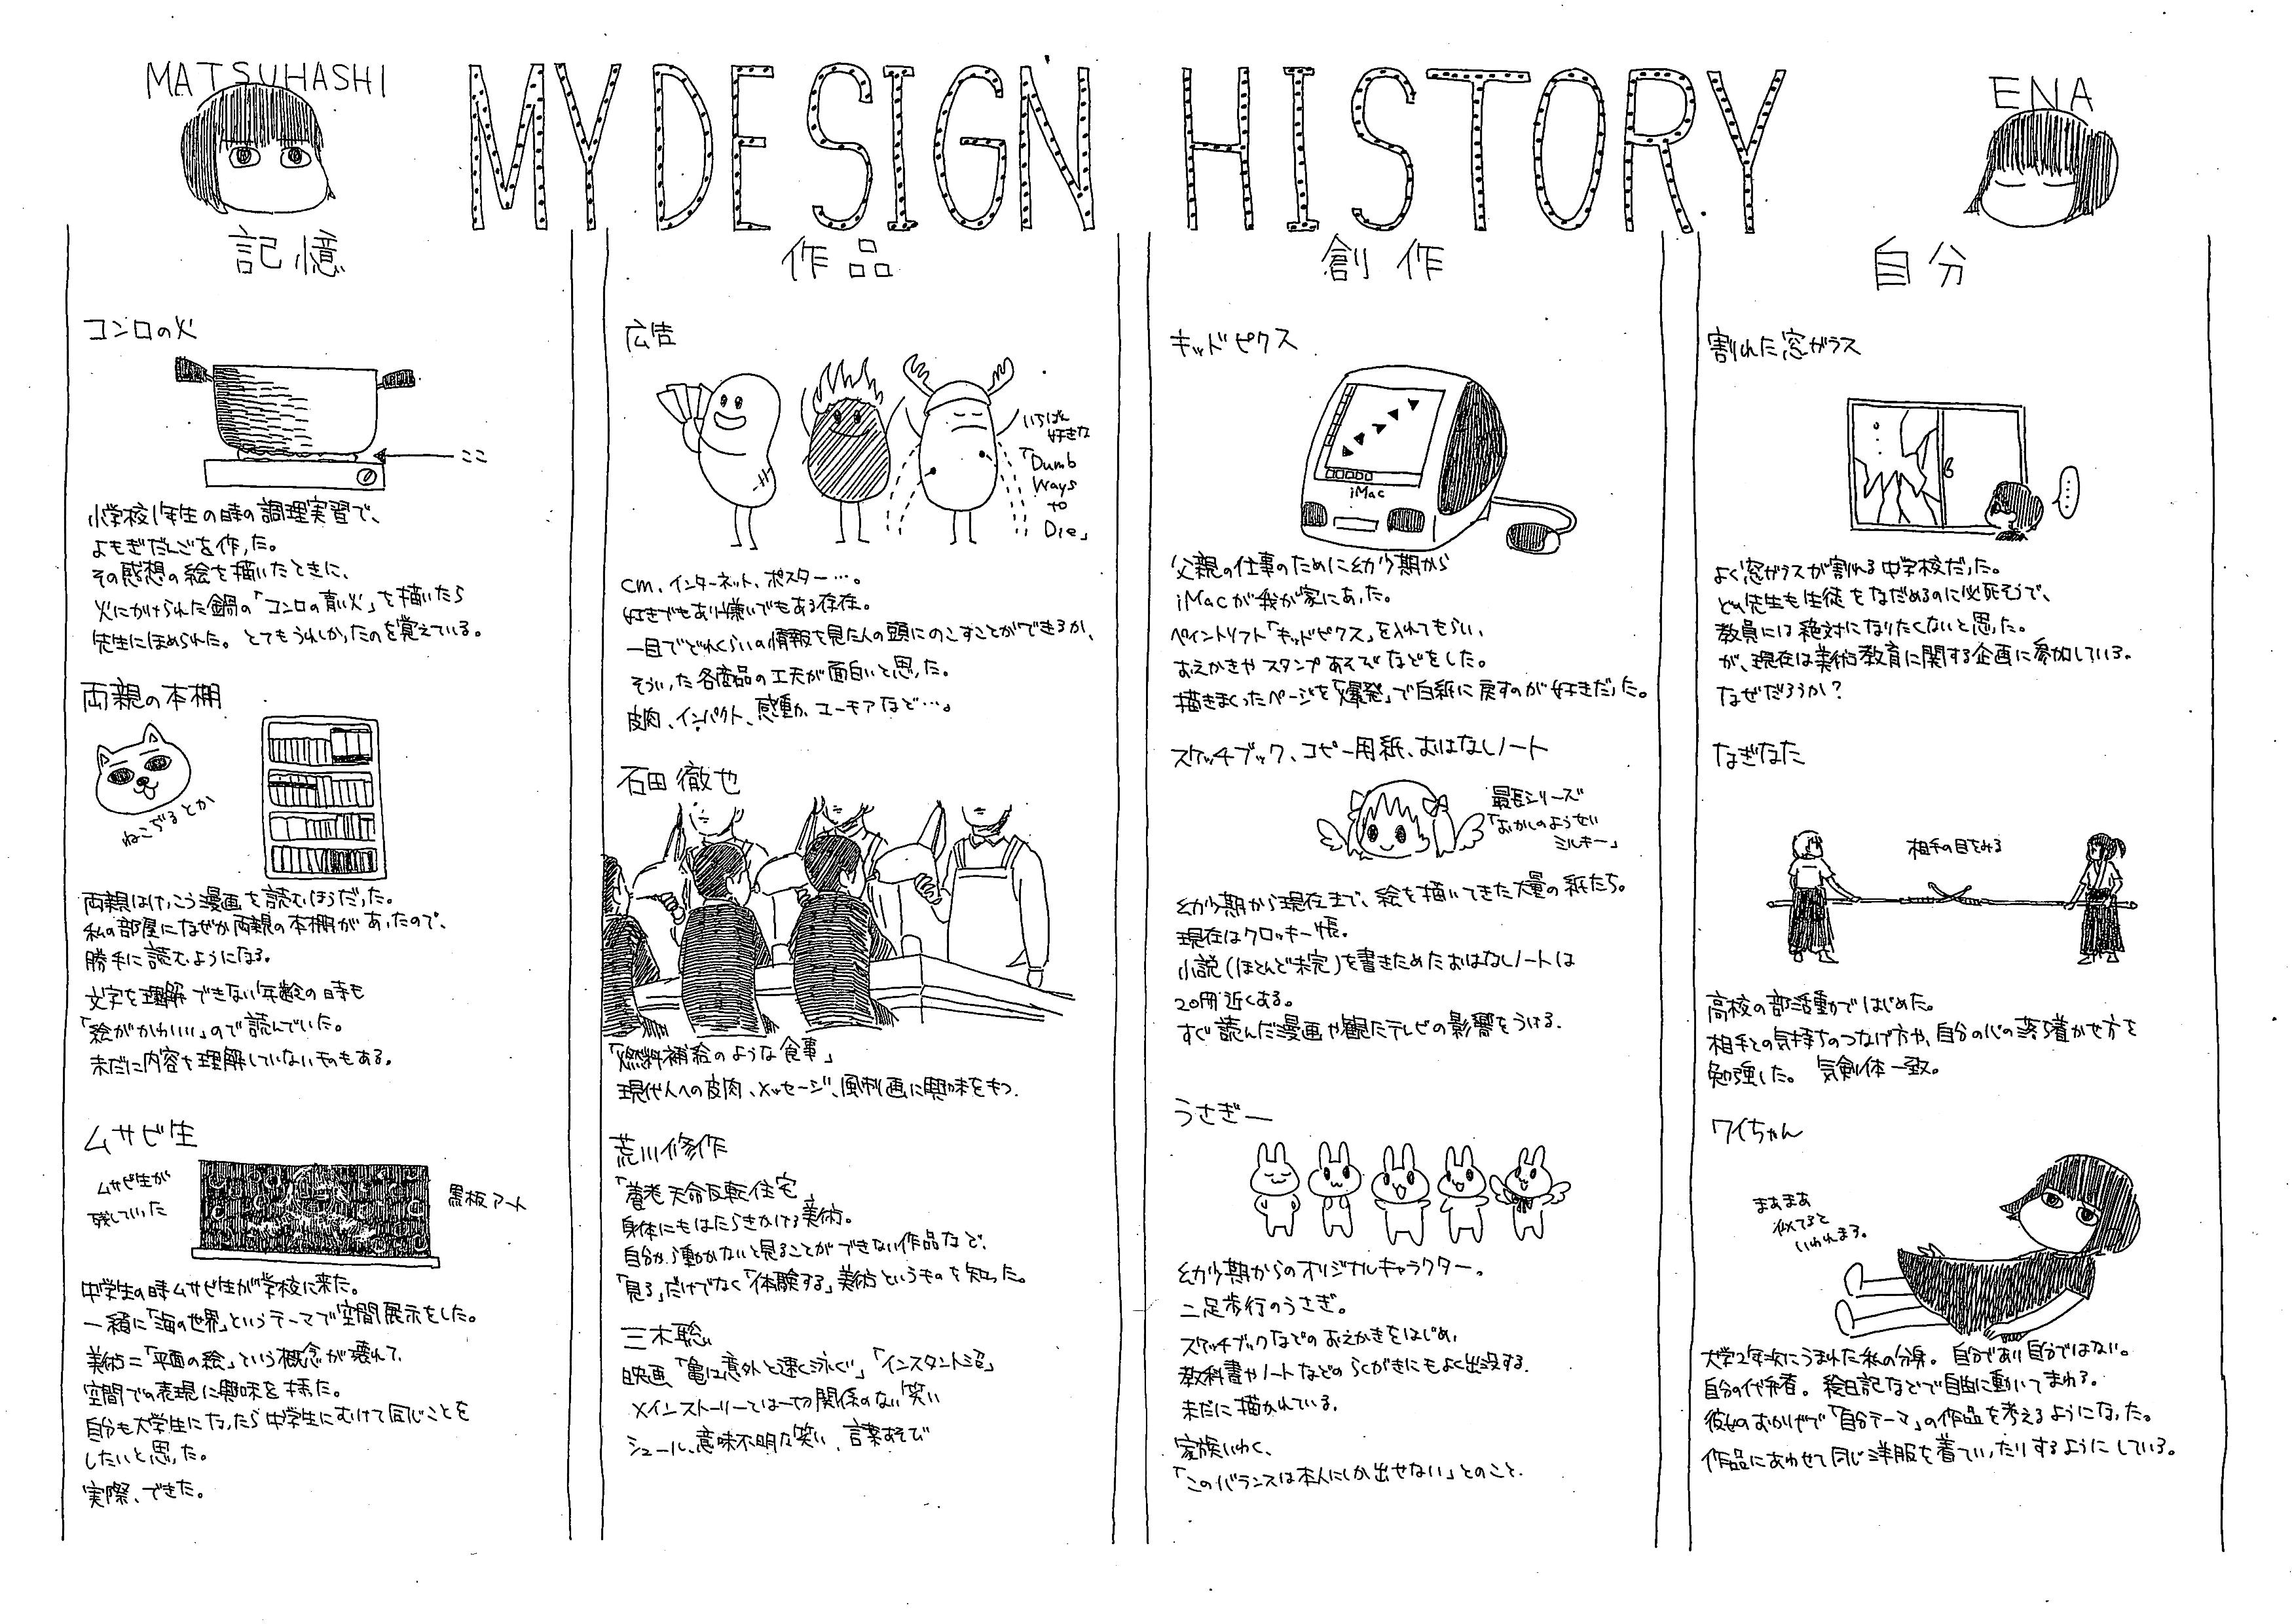 MATSUHASHI
MY DESIGN HISTORY
ENA
記憶
コンロの火
ここ
小学校1年生の時の調理実習で、
よもぎだんごを作った。
その感想の絵を描いたときに、
火にかけられた鍋の「コンロの青い火」を描いたら
先生にほめられた。とてもうれしかったのを覚えている。
両親の本棚
ねこぢるとか
両親はけっこう漫画を読むほうだった。
私の部屋になぜか両親の本棚があったので、
勝手に読むようになる。
文字を理解できない年齢の時も
「絵がかわいい」ので読んでいた。
未だに内容を理解していないものもある。
ムサビ生
ムサビ生が
残していった
黒板アート
中学生の時ムサビ生が学校に来た。
一緒に「海の世界」というテーマで空間展示をした。
美術=「平面の絵」という概念が壊れて、
空間での表現に興味を持った。
自分も大学生になったら中学生にむけて同じことを
したいと思った。
実際、できた。
作品
広告
いちばん
好きな
「Dumb
Ways
to
Die」
CM、インターネット、ポスター…。
好きでもあり嫌いでもある存在。
一目でどれくらいの情報を見た人の頭にのこすことができるか、
そういった各商品の工夫が面白いと思った。
皮肉、インパクト、感動、ユーモアなど…。
石田徹也
「燃料補給のような食事」
現代人への皮肉、メッセージ、風刺画に興味をもつ.
荒川修作
「養老天命反転住宅
身体にもはたらきかける美術。
自分から動かないと見ることができない作品など、
「見る」だけでなく「体験する」美術というものを知った。
三木聡
映画「亀は意外と速く泳ぐ」「インスタント沼」
メインストーリーとは一切関係のない笑い
シュール、意味不明な笑い、言葉あそび
創作
キッドピクス
iMac
父親の仕事のために幼少期から
iMacが我が家にあった。
ペイントソフト「キッドピクス」を入れてもらい、
おえかきやスタンプあそびなどをした。
描きまくったページを「爆発」で白紙に戻すのが好きだった。
スケッチブック、コピー用紙、おはなしノート
最長シリーズ
「おかしのようせい
ミルキー」
幼少期から現在まで、絵を描いてきた大量の紙たち。
現在はクロッキー帳。
小説(ほとんど未完)を書きためたおはなしノートは
20冊近くある。
すぐ読んだ漫画や観たテレビの影響をうける.
うさぎー
幼少期からのオリジナルキャラクター。
二足歩行のうさぎ。
スケッチブックなどのおえかきをはじめ、
教科書やノートなどのらくがきにもよく出没する.
未だに描かれている.
家族いわく、
「このバランスは本人にしか出せない」とのこと.
自分
割れた窓ガラス
よく窓ガラスが割れる中学校だった。
どの先生も生徒をなだめるのに必死そうで、
教員には絶対になりたくないと思った。
が、現在は美術教育に関する企画に参加している。
なぜだろうか?
なぎなた
相手の目をみる
高校の部活動ではじめた。
相手との気持ちのつなげ方や、自分の心の落ち着かせ方を
勉強した。 気剣体一致。
ワイちゃん
まあまあ
似てると
いわれまる。
大学2年次にうまれた私の分身。自分であり自分ではない。
自分の代弁者。絵日記などで自由に動いてまわる。
彼女のおかげで「自分テーマ」の作品を考えるようになった。
作品にあわせて同じ洋服を着ていったりするようにしている。